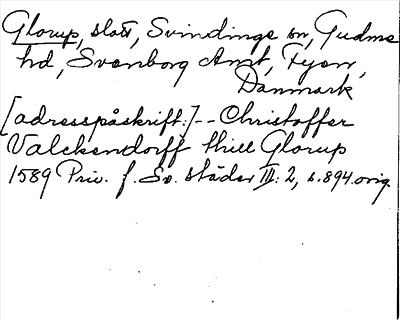 Glorup, slott, Svindinge sn, Gudme
hd, Svenborg Amt, Fyen,
Danmark
[adresspåskrift:]-- Christoffer
Valckendorff thill Glorup
1589 Priv. f. Sv. städer III: 2, s. 894. orig.